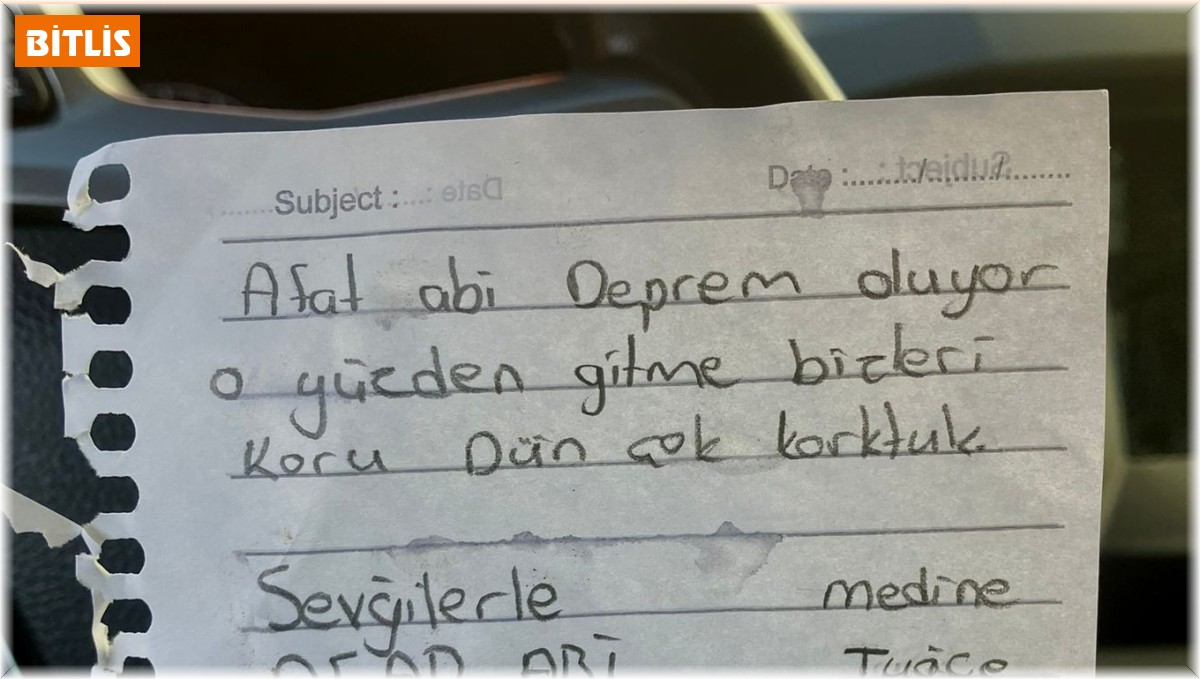 BİTLİS
Subject : Date :....../....../......
Afat abi Deprem oluyor
o yüzden gitme bizleri
Koru Dün çok korktuk.
Sevgilerle medine
AFAD ABİ